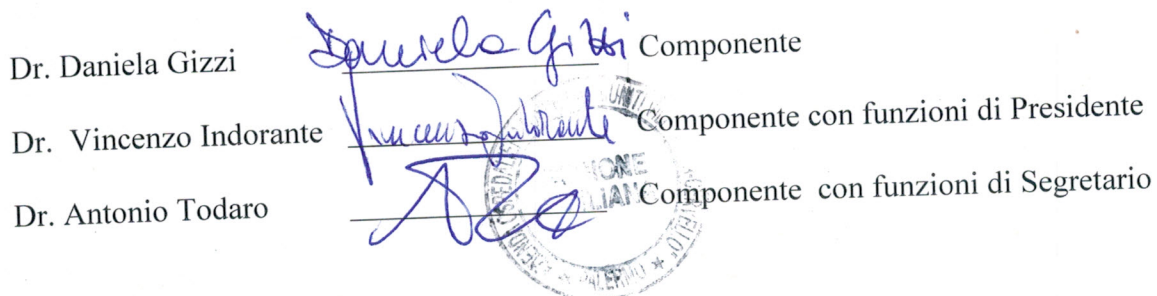 Dr. Daniela Gizzi Daniela Gizzi Componente
Dr. Vincenzo Indorante Vincenzo Indorante Componente con funzioni di Presidente
Dr. Antonio Todaro Componente con funzioni di Segretario
PALERMO